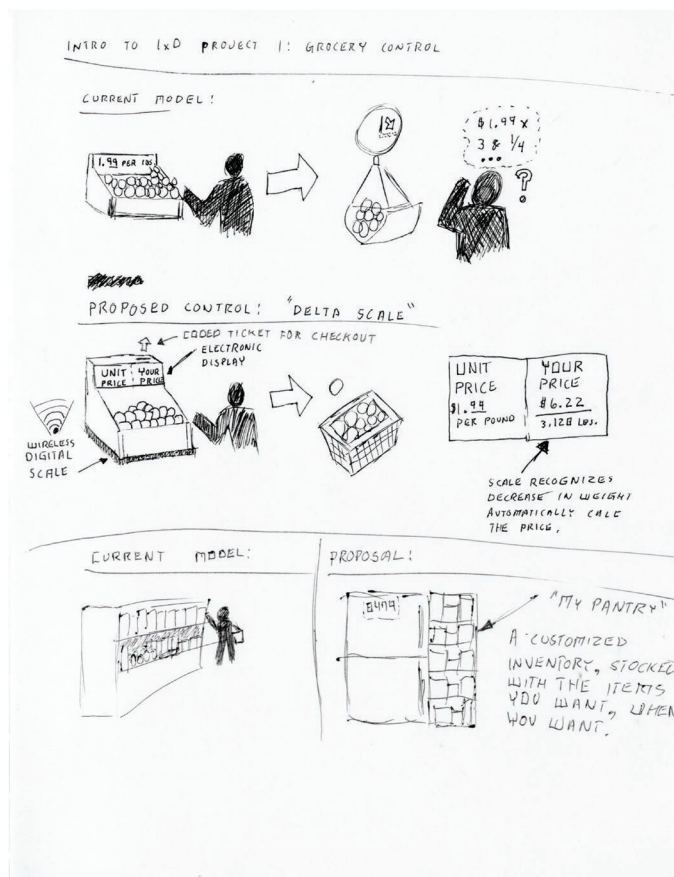 INTRO TO IXD PROJECT 1: GROCERY CONTROL
CURRENT MODEL:
1.99 PER LBS.
$1.99 X
3 & 1/4
...
?
PROPOSED CONTROL: "DELTA SCALE"
CODED TICKET FOR CHECKOUT
ELECTRONIC
DISPLAY
UNIT PRICE
YOUR PRICE
WIRELESS
DIGITAL
SCALE
UNIT
PRICE
$1.99
PER POUND
YOUR
PRICE
$6.22
3.128 LBS.
SCALE RECOGNIZES
DECREASE IN WEIGHT
AUTOMATICALLY CALC
THE PRICE.
CURRENT MODEL:
PROPOSAL:
"MY PANTRY"
A CUSTOMIZED
INVENTORY, STOCKED
WITH THE ITEMS
YOU WANT, WHEN
YOU WANT.